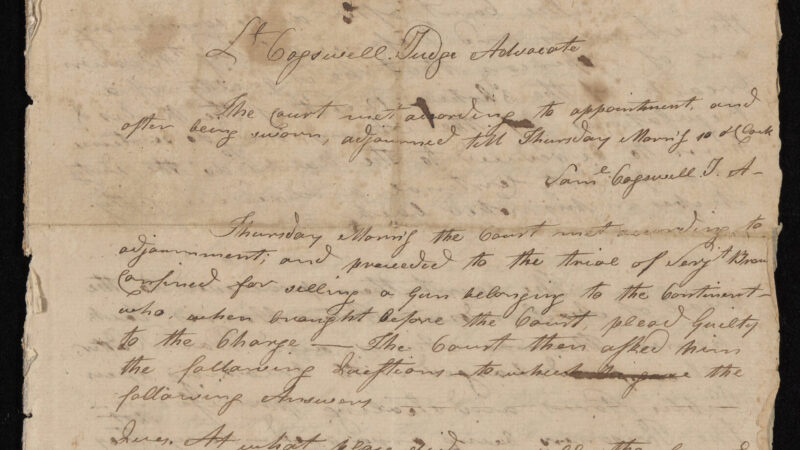 Lt. Cogswell. Judge Advocate
The Court met according to appointment, and
after being sworn, adjourned till Thursday Morng 10 oClock
Saml. Cogswell J. A-
Thursday Morng the Court met according to
adjournment; and proceeded to the trial of Serjt. Brown
Confined for selling a Gun belonging to the Continent-
who, when brought before the Court, plead Guilty
to the Charge — The Court then asked him
the following Questions to which he gave the
following Answers
Ques. At what place did